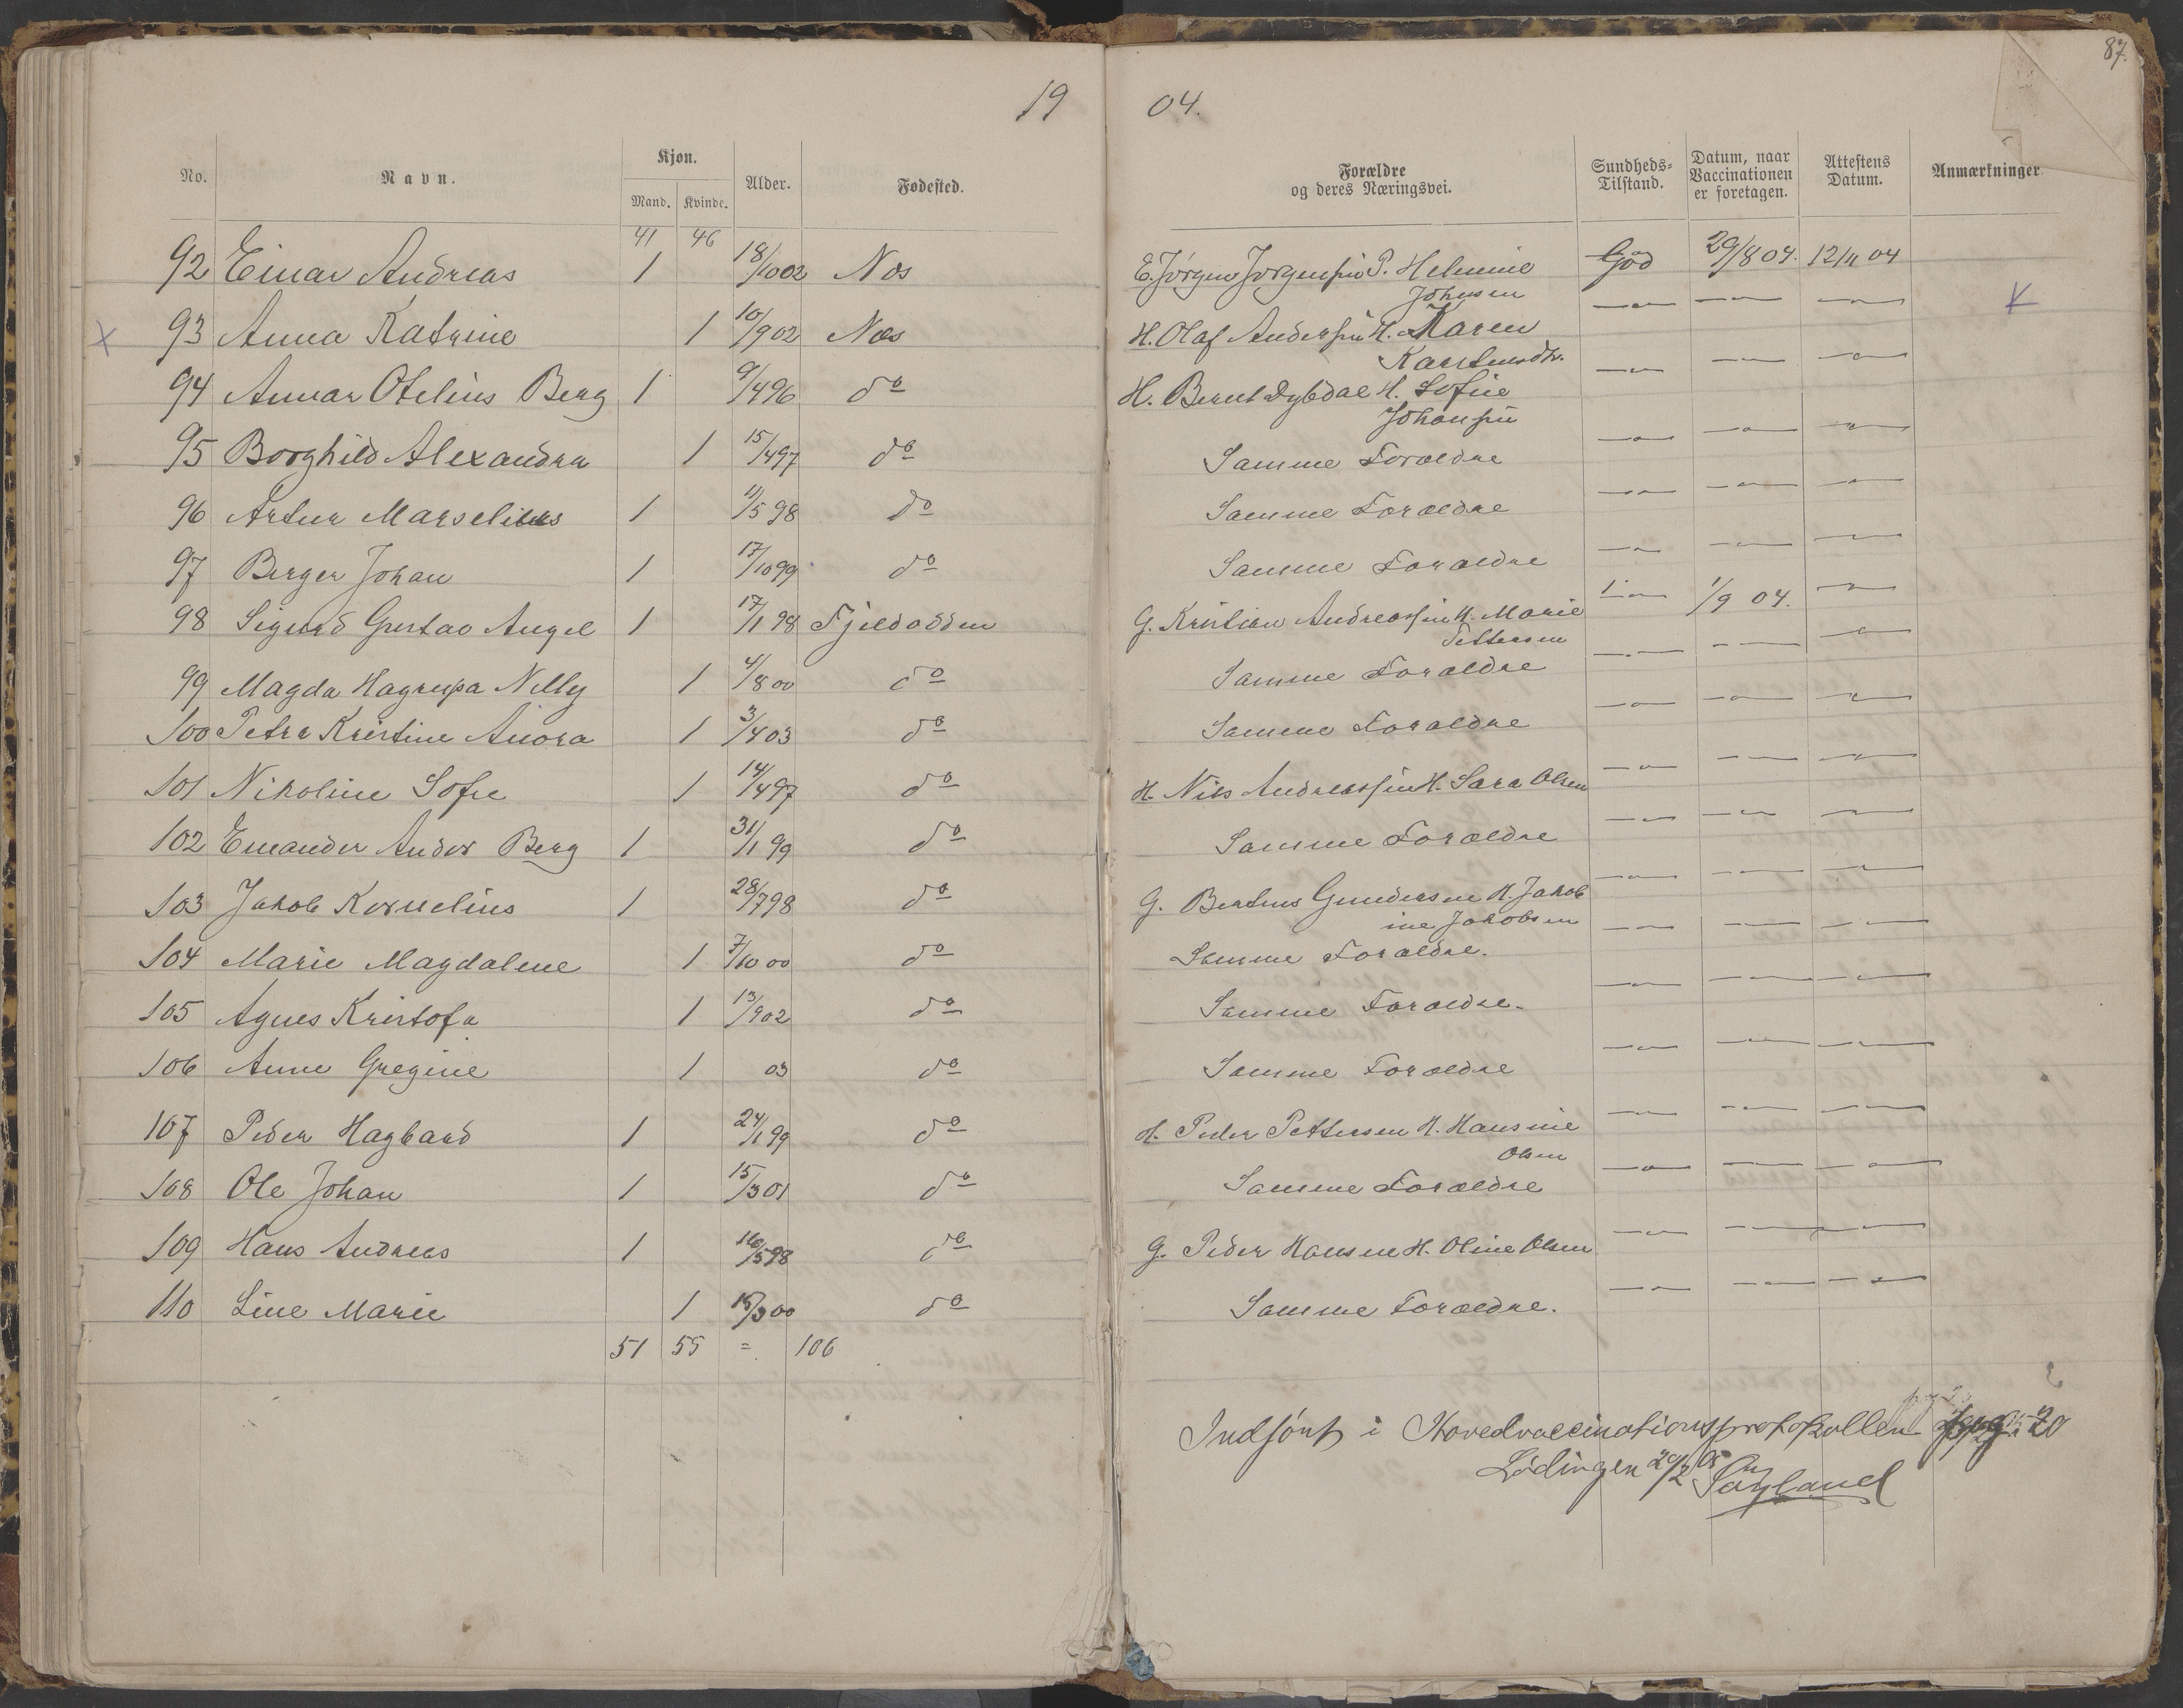 87.
19 04.
No. Navn. Kjøn. Alder. Fødested. Forældre og deres Næringsvei. Sundheds-Tilstand. Datum, naar Vaccinationen er foretagen. Attestens Datum. Anmærkninger
Mand. Kvinde.
41 46
92 Einar Andreas 1 18/10 02 Nøs E. Jørgen Jørgensen P. Helmine God 29/8 04. 12/11 04
Johnsen
x 93 Anna Katrine 1 10/9 02 Nøs H. Olaf Andersen H. Karen —"— —"— —"— x
Karstensdtr.
94 Annar Otelius Berg 1 9/4 96 do H. Bernt Dybdal H. Sofie —"— —"— —"—
Johansen
95 Borghild Alexandra 1 15/4 97 do Samme Forældre —"— —"— —"—
96 Artur Marselius 1 11/5 98 do Samme Forældre —"— —"— —"—
97 Berger Johan 1 17/10 99 do Samme Forældre —"— —"— —"—
98 Sigurd Gustav Angel 1 17/1 98 Fjeldodden G. Kristian Andreassen H. Marie —"— 1/9 04. —"—
Pettersen
99 Magda Hagrupa Nelly 1 4/8 00 do Samme Forældre —"— —"— —"—
100 Petra Kristine Anora 1 3/4 03 do Samme Forældre —"— —"— —"—
101 Nikoline Sofie 1 14/4 97 do H. Nils Andreassen H. Sara Olsen —"— —"— —"—
102 Emander Andor Berg 1 31/1 99 do Samme Forældre —"— —"— —"—
103 Jakob Kornelius 1 28/7 98 do G. Berteus Gundersen H. Jakob —"— —"— —"—
ine Jakobsen
104 Marie Magdalene 1 7/10 00 do Samme Forældre. —"— —"— —"—
105 Agnes Kristofa 1 13/9 02 do Samme Forældre. —"— —"— —"—
106 Anne Gregine 1 03 do Samme Forældre —"— —"— —"—
107 Peder Hagbard 1 24/1 99 do H. Peder Pettersen H. Hansine —"— —"— —"—
Olsen
108 Ole Johan 1 15/3 01 do Samme Forældre —"— —"— —"—
109 Hans Andreas 1 16/5 98 do G. Peder Hansen H. Oline Olsen —"— —"— —"—
110 Line Marie 1 15/3 00 do Samme Forældre. —"— —"— —"—
51 55 = 106
Indført i Hovedvaccinationsprotokollen
Lødingen 20/2 05